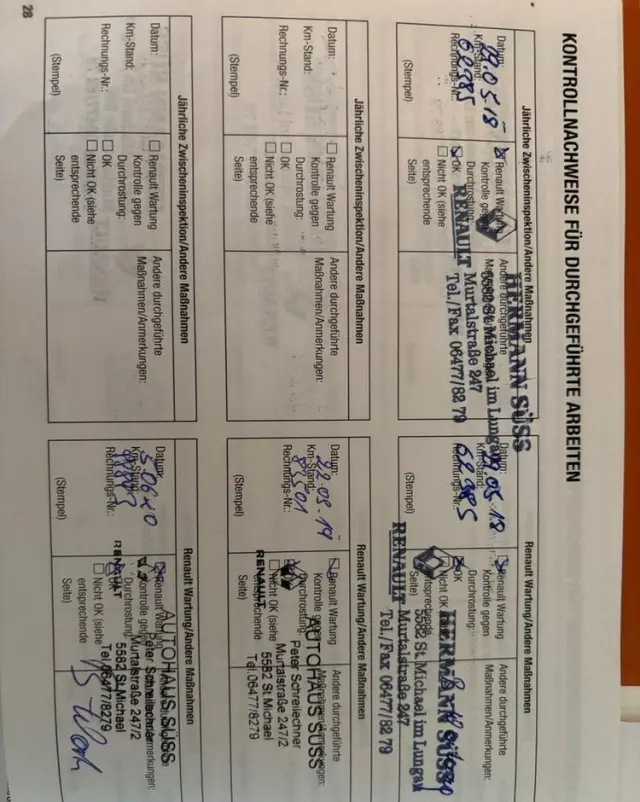 KONTROLLNACHWEISE FÜR DURCHGEFÜHRTE ARBEITEN
Jährliche Zwischeninspektion/Andere Maßnahmen
Datum:
29.05.18
Km-Stand:
62985
Rechnungs-Nr.:
(Stempel)
Renault Wartung
Kontrolle gegen
Durchrostung:
OK
Nicht OK (siehe
entsprechende
Seite)
Andere durchgeführte
HERMANN SÜSS
5582 St. Michael im Lungau
Murtalstraße 247
RENAULT Tel./Fax 06477/82 79
Renault Wartung/Andere Maßnahmen
Datum:
29.05.18
Km-Stand:
62985
Rechnungs-Nr.:
(Stempel)
Renault Wartung
Kontrolle gegen
Durchrostung:
OK
Nicht OK (siehe
entsprechende
Seite)
Andere durchgeführte
Maßnahmen/Anmerkungen:
HERMANN SÜSS
5582 St. Michael im Lungau
Murtalstraße 247
RENAULT Tel./Fax 06477/82 79
Jährliche Zwischeninspektion/Andere Maßnahmen
Datum:
Km-Stand:
Rechnungs-Nr.:
(Stempel)
Renault Wartung
Kontrolle gegen
Durchrostung:
OK
Nicht OK (siehe
entsprechende
Seite)
Andere durchgeführte
Maßnahmen/Anmerkungen:
Renault Wartung/Andere Maßnahmen
Datum:
Km-Stand:
83501
Rechnungs-Nr.:
(Stempel)
Renault Wartung
Kontrolle gegen
Durchrostung:
Nicht OK (siehe
entsprechende
Seite)
Andere durchgeführte
Maßnahmen/Anmerkungen:
AUTOHAUS SÜSS
Peter Schreilechner
Murtalstraße 247/2
5582 St. Michael
RENAULT Tel. 06477/8279
Jährliche Zwischeninspektion/Andere Maßnahmen
Datum:
Km-Stand:
Rechnungs-Nr.:
(Stempel)
Renault Wartung
Kontrolle gegen
Durchrostung:
OK
Nicht OK (siehe
entsprechende
Seite)
Andere durchgeführte
Maßnahmen/Anmerkungen:
Renault Wartung/Andere Maßnahmen
Datum:
Km-Stand:
Rechnungs-Nr.:
(Stempel)
Renault Wartung
Kontrolle gegen
Durchrostung:
Nicht OK (siehe
entsprechende
Seite)
AUTOHAUS SÜSS
Peter Schreilechner
Murtalstraße 247/2
5582 St. Michael
RENAULT Tel. 06477/8279
28